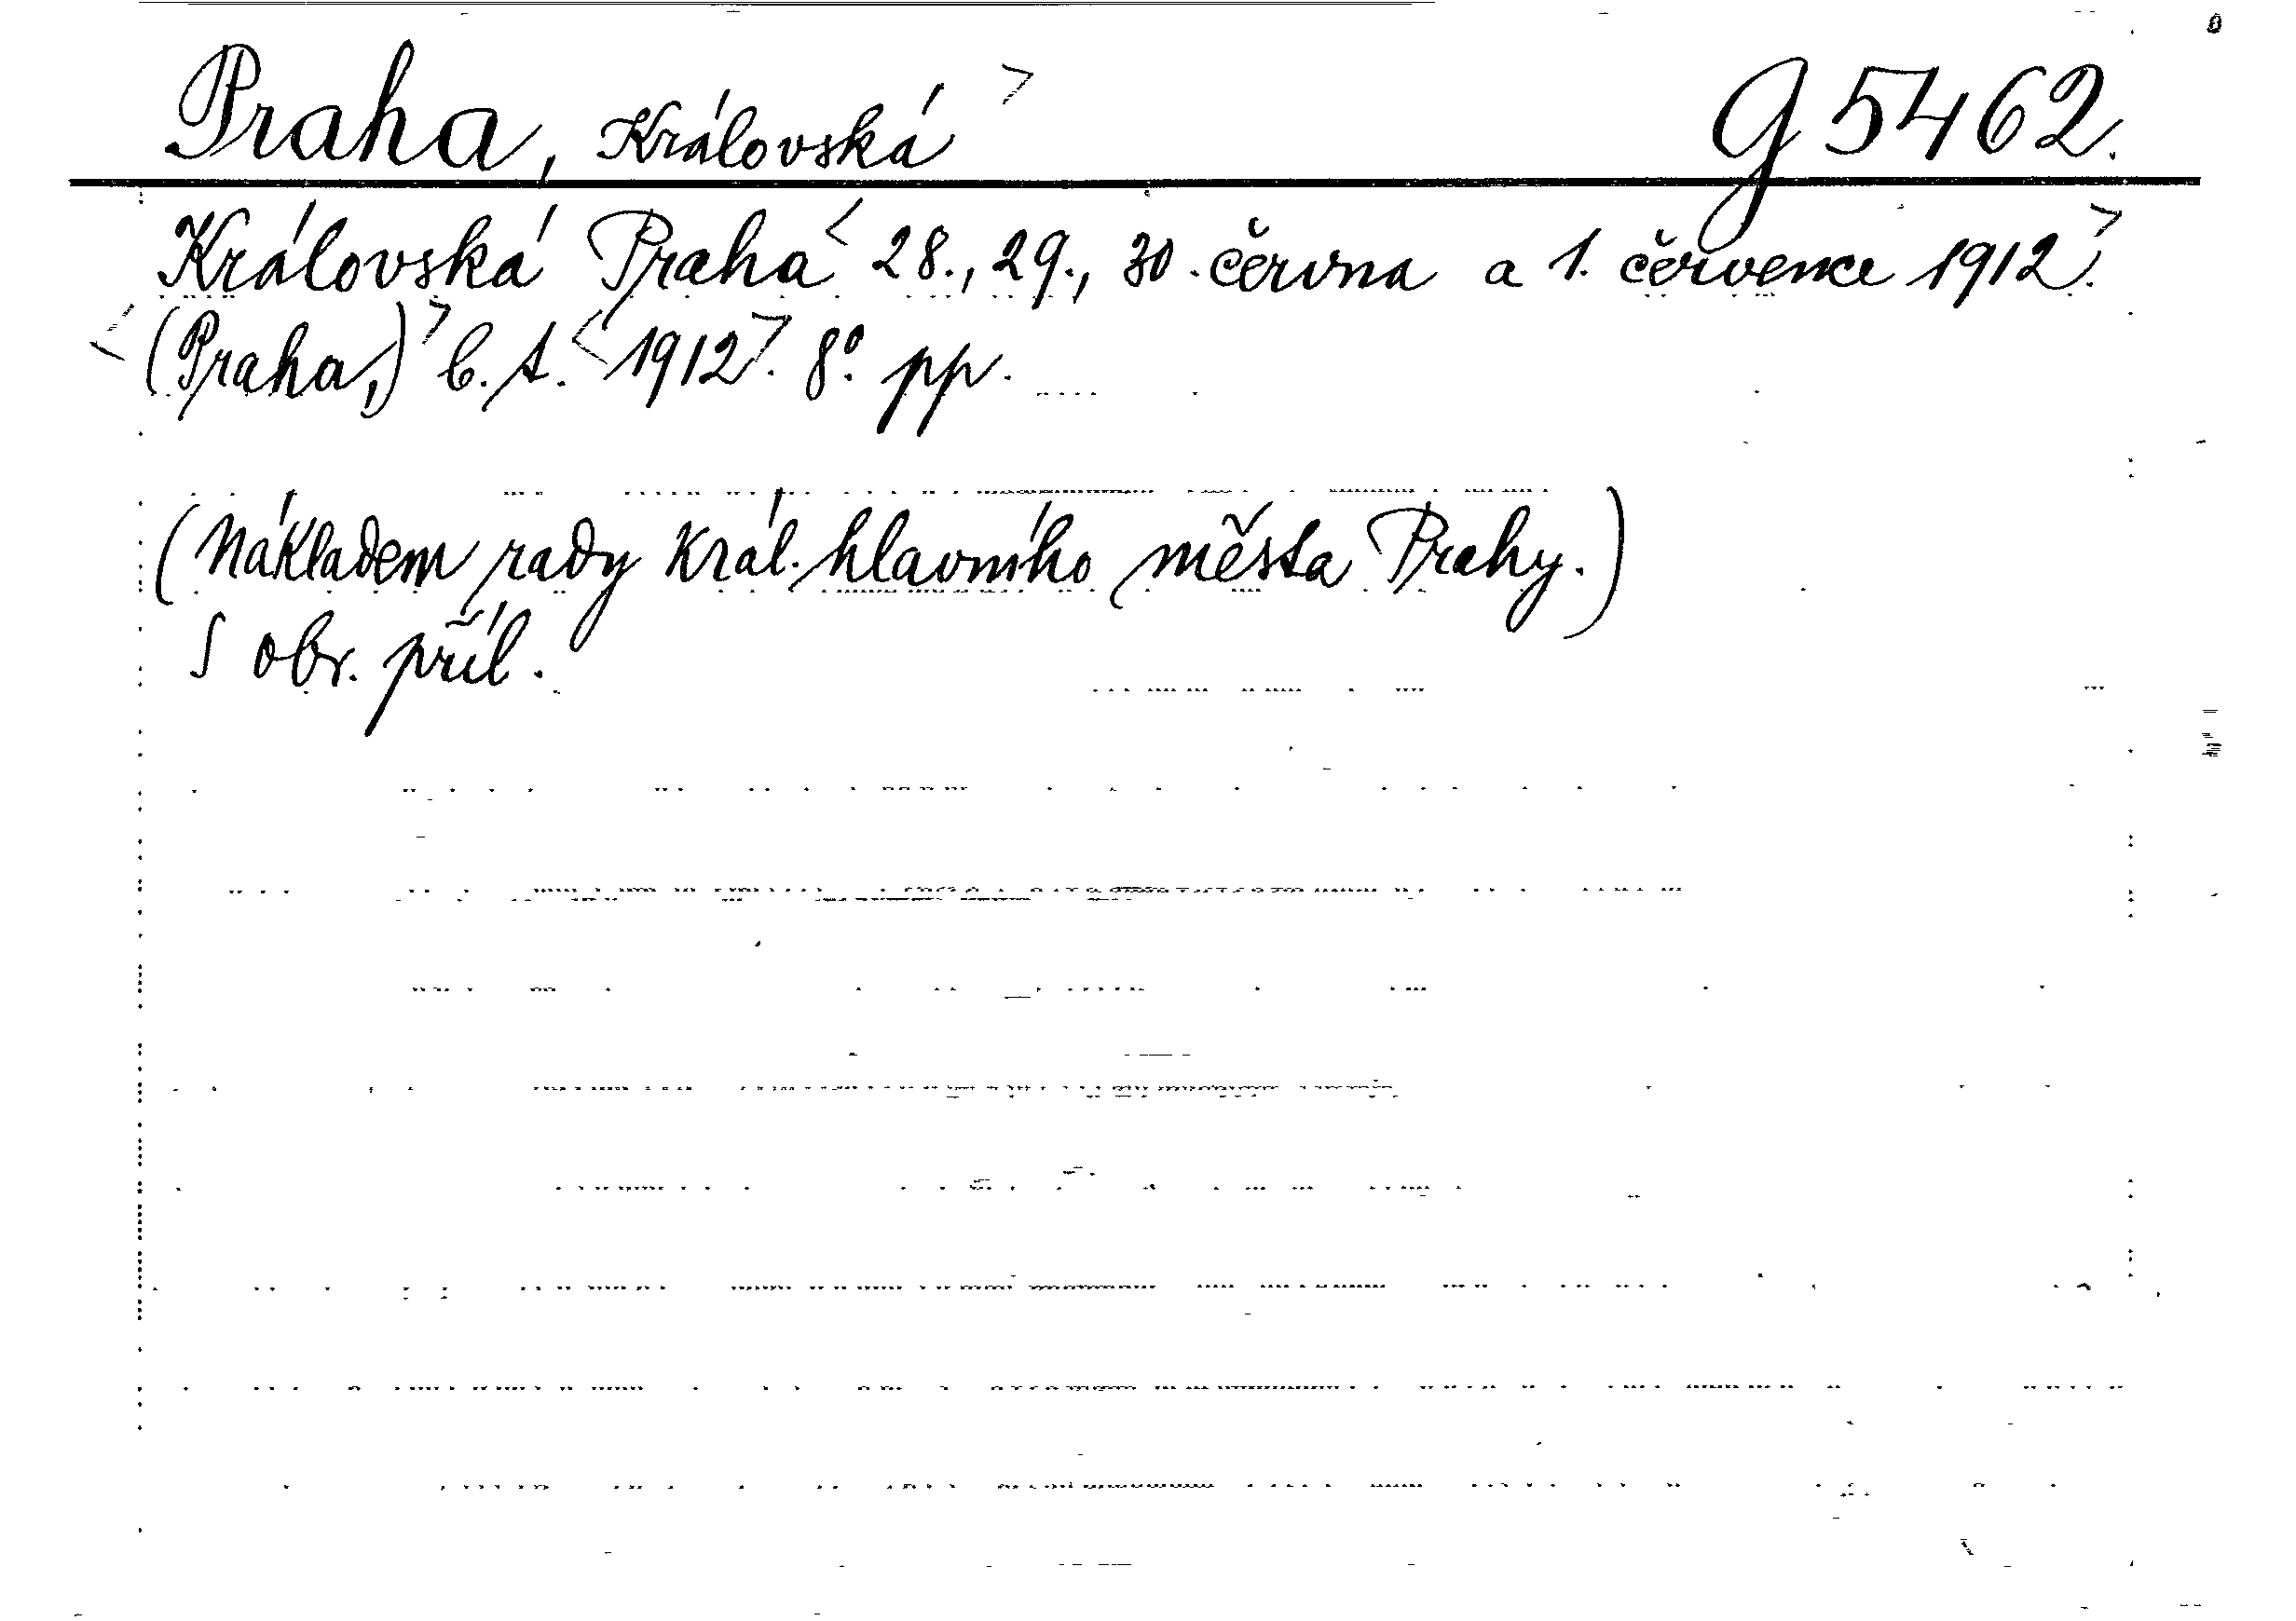 Praha, Královská > G 5462.
Královská Praha < 28., 29., 30. června a 1. července 1912 >.
< (Praha,) > b. t. < 1912 >. 8º. pp.
(Nákladem rady král. hlavního města Prahy.)
S obr. příl.